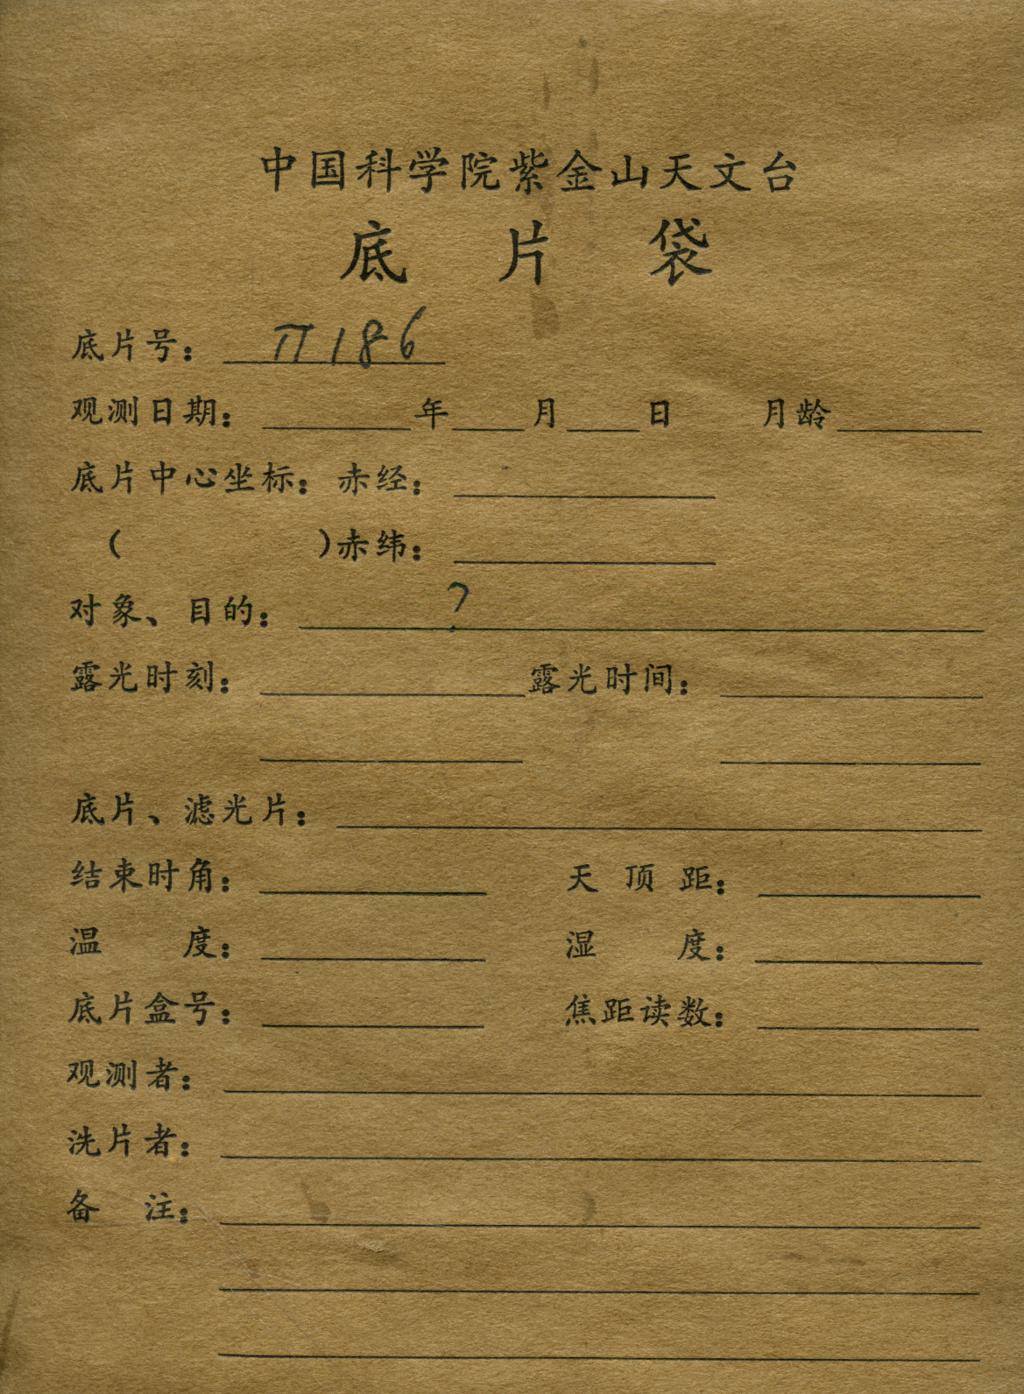 中国科学院紫金山天文台
底片袋
底片号：π186
观测日期：____年____月____日 月龄____
底片中心坐标：赤经：____
（ ）赤纬：____
对象、目的：?
露光时刻：____露光时间：____
底片、滤光片：____
结束时角：____ 天顶距：____
温度：____ 湿度：____
底片盒号：____ 焦距读数：____
观测者：____
洗片者：____
备注：____